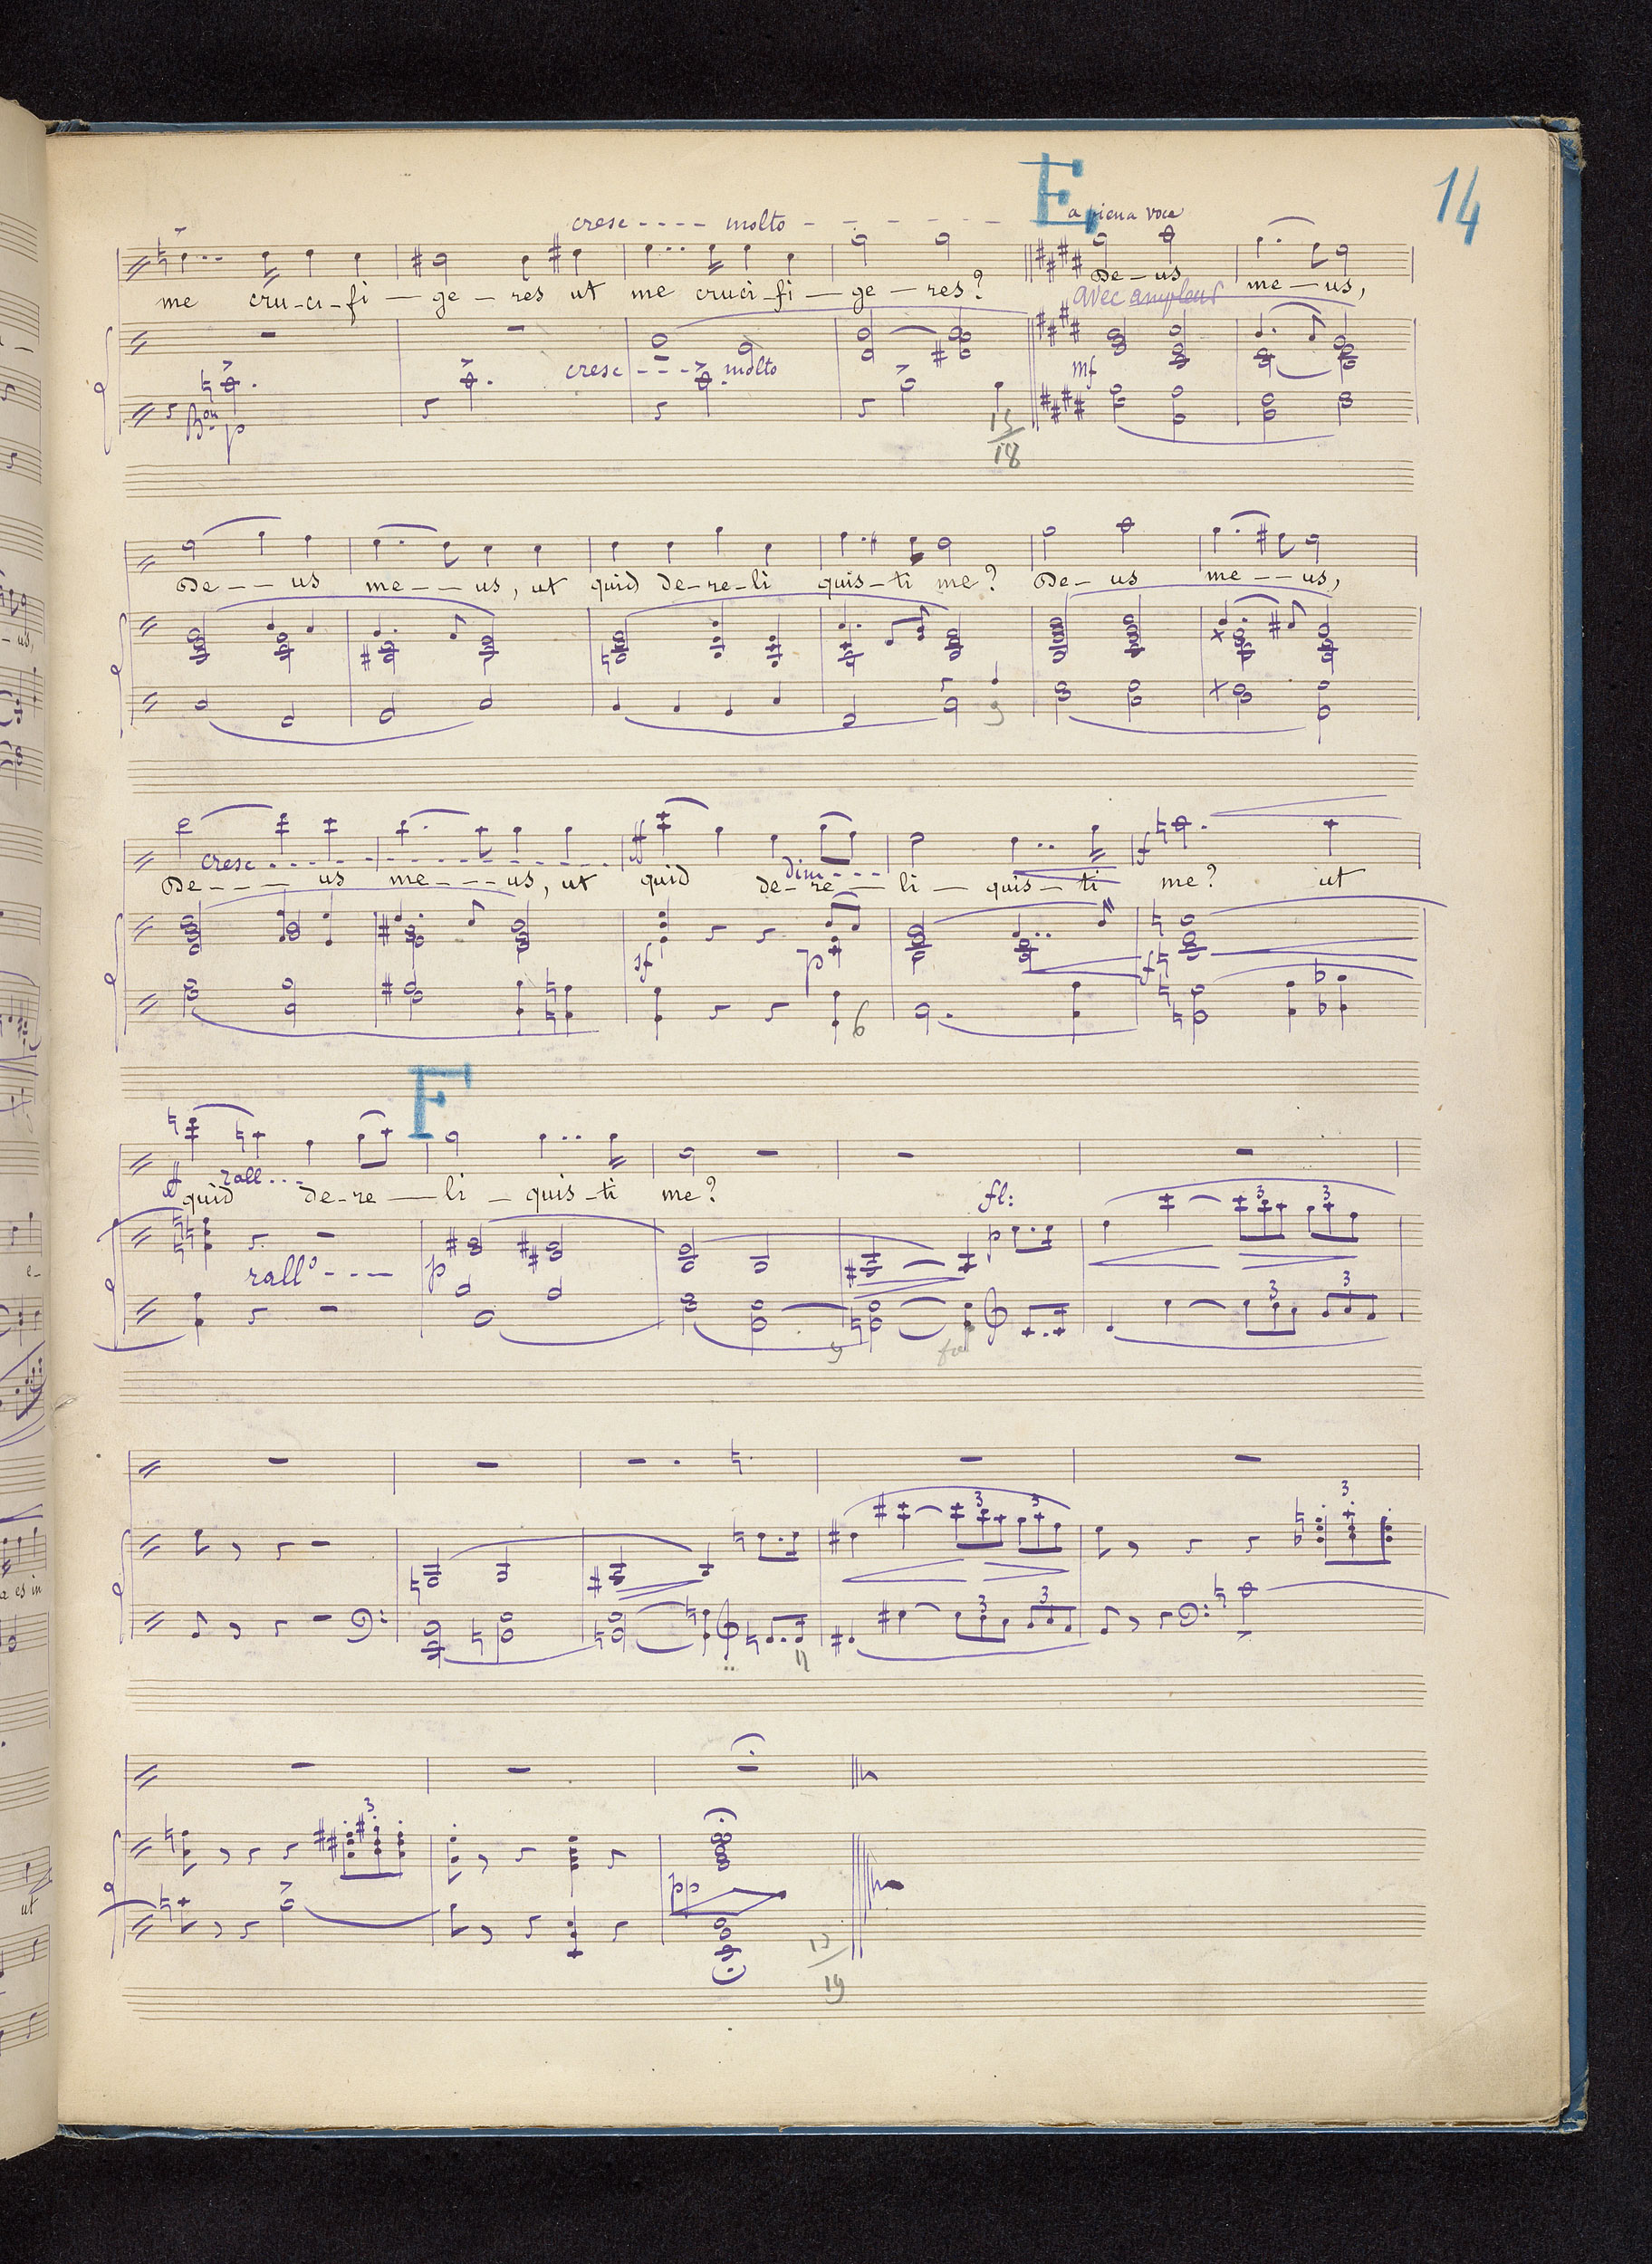 14
E.
cresc - - - - molto - - - - - - a piena voce
me cru-ci-fi — ge — res ut me cruci-fi — ge — res? De — us me — us,
avec ampleur
cresc - - - - molto
mf
Bon p
15/18
De - - - us me - - - us, ut quid de-re-li quis-ti me? De — us me - - us,
9
cresc - - - - - - - - ff dim - - - - f
De - - - - us me - - - us, ut quid de-re — li — quis-ti me? ut
sf p f
6
F
ff rall - - -
quid de-re — li — quis-ti me?
fl:
p 3 3
rallo - - - - p
3 3
9
3 3 3
3 3
11
3
pp
19